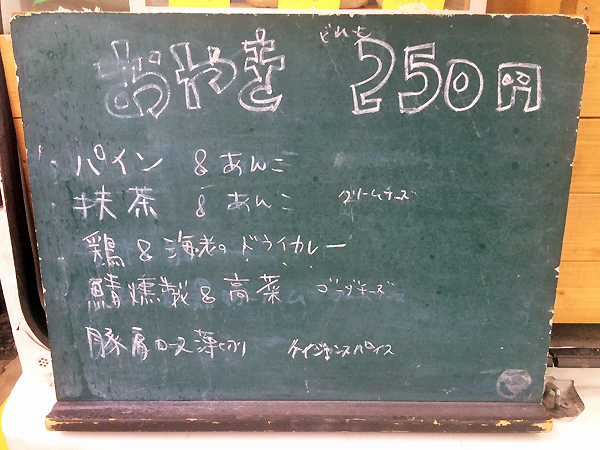 おやき どれも 250円
パイン & あんこ
抹茶 & あんこ クリームチーズ
鶏 & 海老のドライカレー
鯖燻製 & 高菜 ゴーダチーズ
豚肩ロース薄切り ケイジャンスパイス